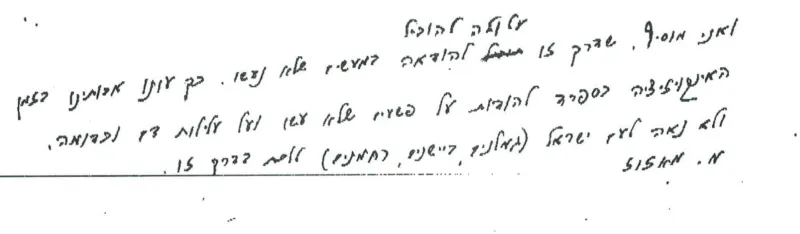 עלולה להוביל
ואני מוסיף, שדרך זו להודאה במעשים שלא נעשו. כך עונו אבותינו בזמן
האינקויזיציה בספרד להודות על פשעים שלא עשו ועל עלילות דם וכדומה.
ולא נאה לעם ישראל (גומלים, ביישנים, רחמנים) ללכת בדרך זו.
מ. מאזוז